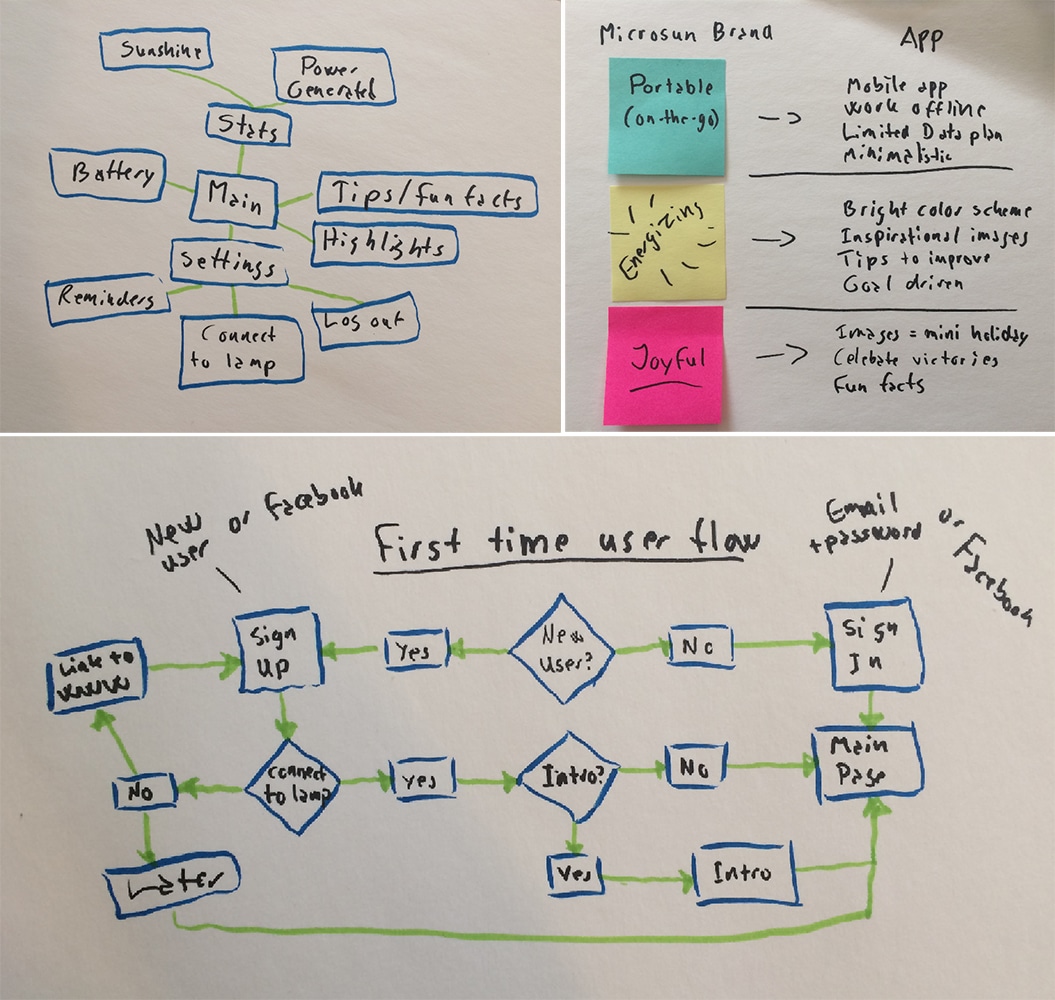 Sunshine
Power
Generated
Stats
Battery
Main
Tips/fun facts
Highlights
Settings
Reminders
Connect
to lamp
Log out
Microsun Brand
App
Portable
(on-the-go)
Mobile app
Work offline
Limited Data plan
Minimalistic
Energizing
Bright color scheme
Inspirational images
Tips to improve
Goal driven
Joyful
Images = mini holiday
Celebate victories
Fun facts
First time user flow
New
user
or Facebook
Email
+password
or
Facebook
Link to
www
Sign
up
Yes
New
user?
No
Sign
In
No
connect
to lamp
yes
Intro?
No
Main
Page
Later
Yes
Intro